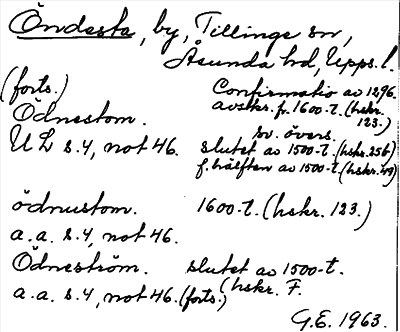 Öndesta, by, Tillinge sn,
Åsunda hd, Upps. l.
(forts.) Confirmatio av 1296.
avskr. fr. 1600-t. (hskr. 123.)
Ödnestom. sv. övers.
UL s. 4, not 46. slutet av 1500-t. (hskr. 256)
f. hälften av 1500-t. (hskr. 49)
ödnustom. 1600-t. (hskr. 123.)
a.a. s. 4, not 46.
Ödneström. slutet av 1500-t.
a.a. s. 4, not 46. (forts.) (hskr. F.
G.E. 1963.